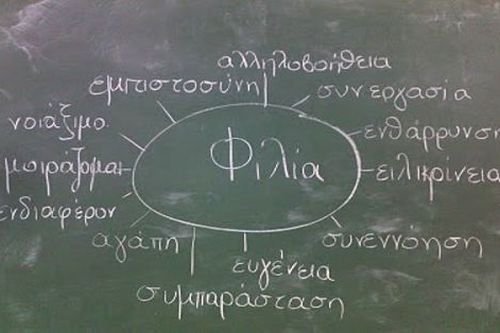 αλληλοβοήθεια
εμπιστοσύνη
συνεργασία
νοιάξιμο
ενθάρρυνση
Φιλία
μοιράζομαι
ειλικρίνεια
ενδιαφέρον
αγάπη
συνεννόηση
ευγένεια
συμπαράσταση